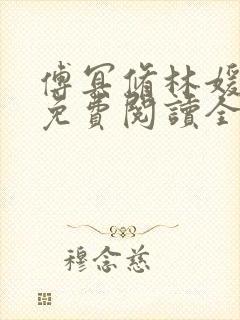 傅冥脩林媛
免費閱讀全
穆念慈